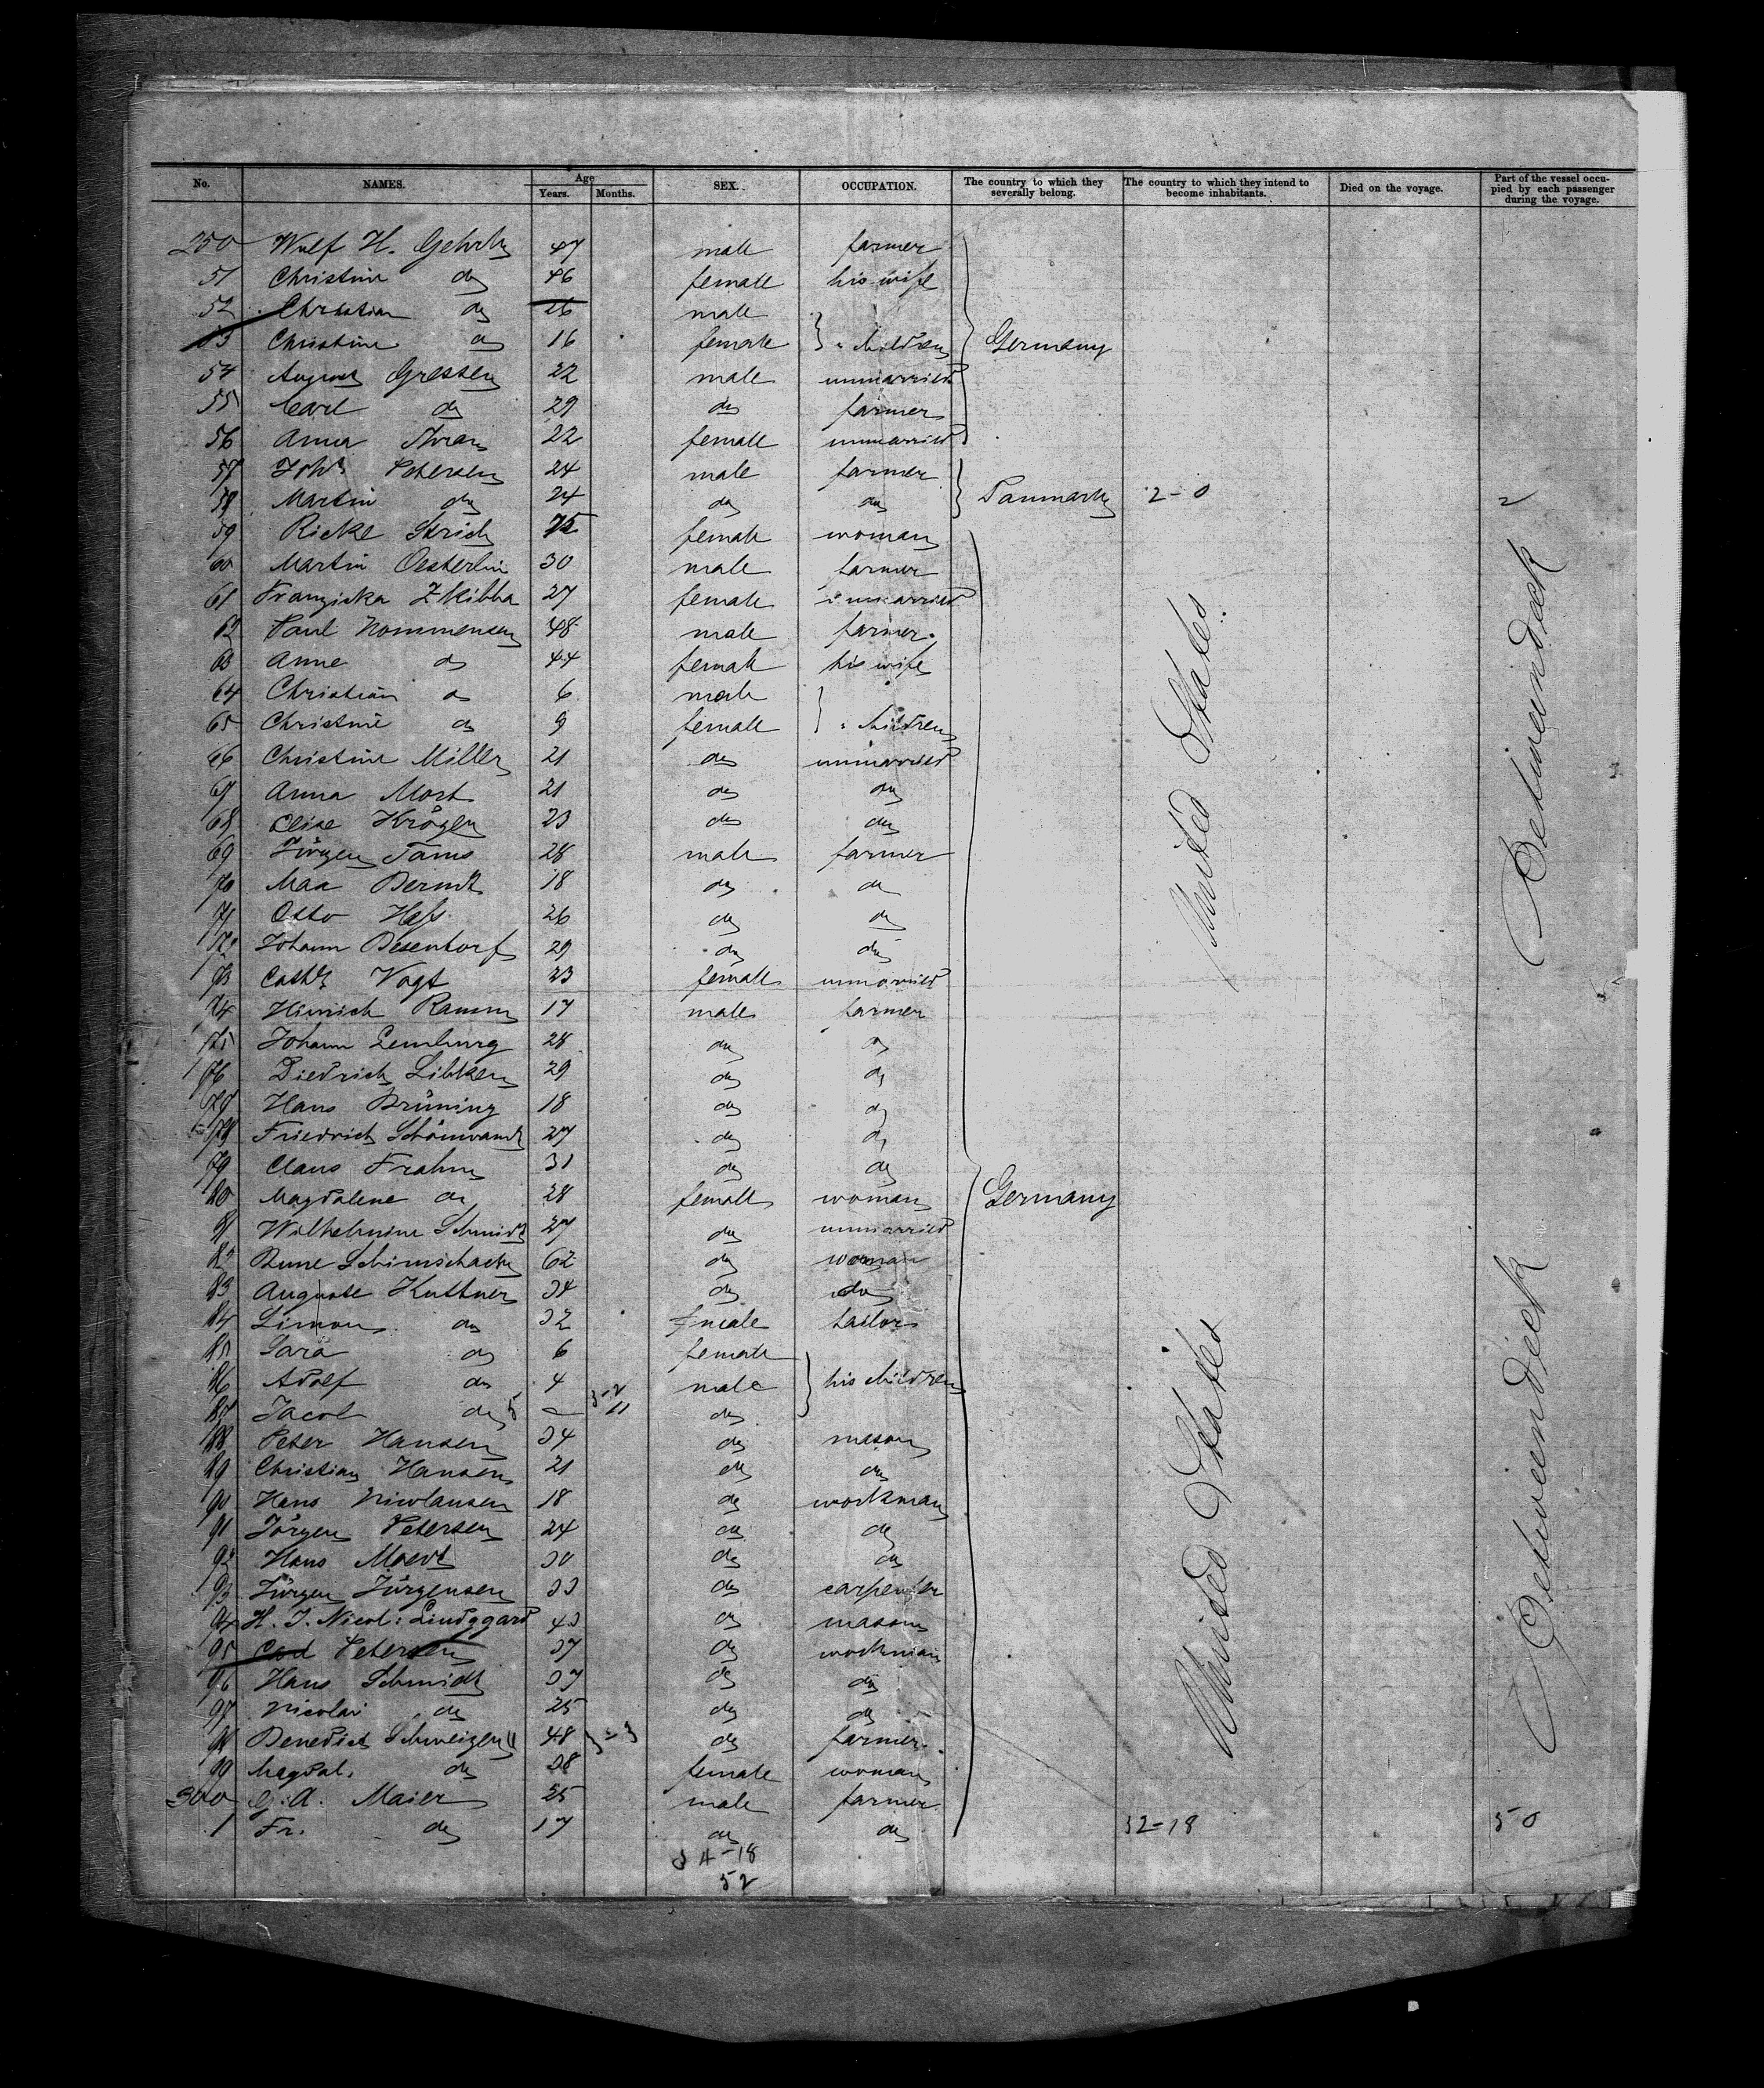 No. NAMES. Age Years. Months. SEX. OCCUPATION. The country to which they severally belong. The country to which they intend to become inhabitants. Died on the voyage. Part of the vessel occupied by each passenger during the voyage.
250 Wulf H. 47 male farmer
51 Christine do 46 female his wife
52 Christian do 26 male
53 Christine do 16 female children Germany
54 August Gressen 22 male unmarried
55 Carl do 29 do farmer
56 Anna 22 female unmarried
57 Petersen 24 male farmer
58 Martin do 24 do do Danmark 2-0 2
59 Rieke 75 female woman
60 Martin Oesterlin 30 male farmer
61 Franziska Zkibba 27 female unmarried
62 Paul Nommensen 48 male farmer
63 Anne do 44 female his wife
64 Christian do 6 male
65 Christine do 9 female children
66 Christine Miller 21 do unmarried
67 Anna 21 do do
68 Elise Kröger 23 do do
69 Jürgen Tams 28 male farmer
70 Max Berndt 18 do do
71 Otto Hass 26 do do
72 Johann Desentorf 29 do do
73 Cath. Vogt 23 female unmarried
74 Hinrich Ramm 17 male farmer
75 Johann Lemburg 28 do do
76 Diedrich Libken 29 do do
77 Hans Brüning 18 do do
78 Friedrich Schönwandt 27 do do
79 Claus Frahm 31 do do
80 Magdalene do 28 female woman Germany
81 Wilhelmine Schmidt 27 do unmarried
82 62 do woman
83 Auguste Kuttner 34 do do
84 Simon do 32 male tailor
85 Sara do 6 female
86 Adolf do 4 male his children
87 Jacob do 11 do
88 Peter Hansen 34 do mason
89 Christian Hansen 21 do do
90 Hans Nicolausen 18 do workman
91 Jörgen Petersen 24 do do
92 Hans 30 do do
93 Jürgen Jürgensen 33 do carpenter
94 H. J. Nicol: Lindggard 43 do mason
95 Carl Petersen 37 do workman
96 Hans Schmidt 37 do do
97 Nicolai do 25 do do
98 Benedict Schweizer 48 do farmer
99 Magdal. do 38 female woman
300 G. A. Maier 25 male farmer
1 Fr. do 17 do do 32-18 50
34-18
52
United States
United States
Betweendeck
Betweendeck